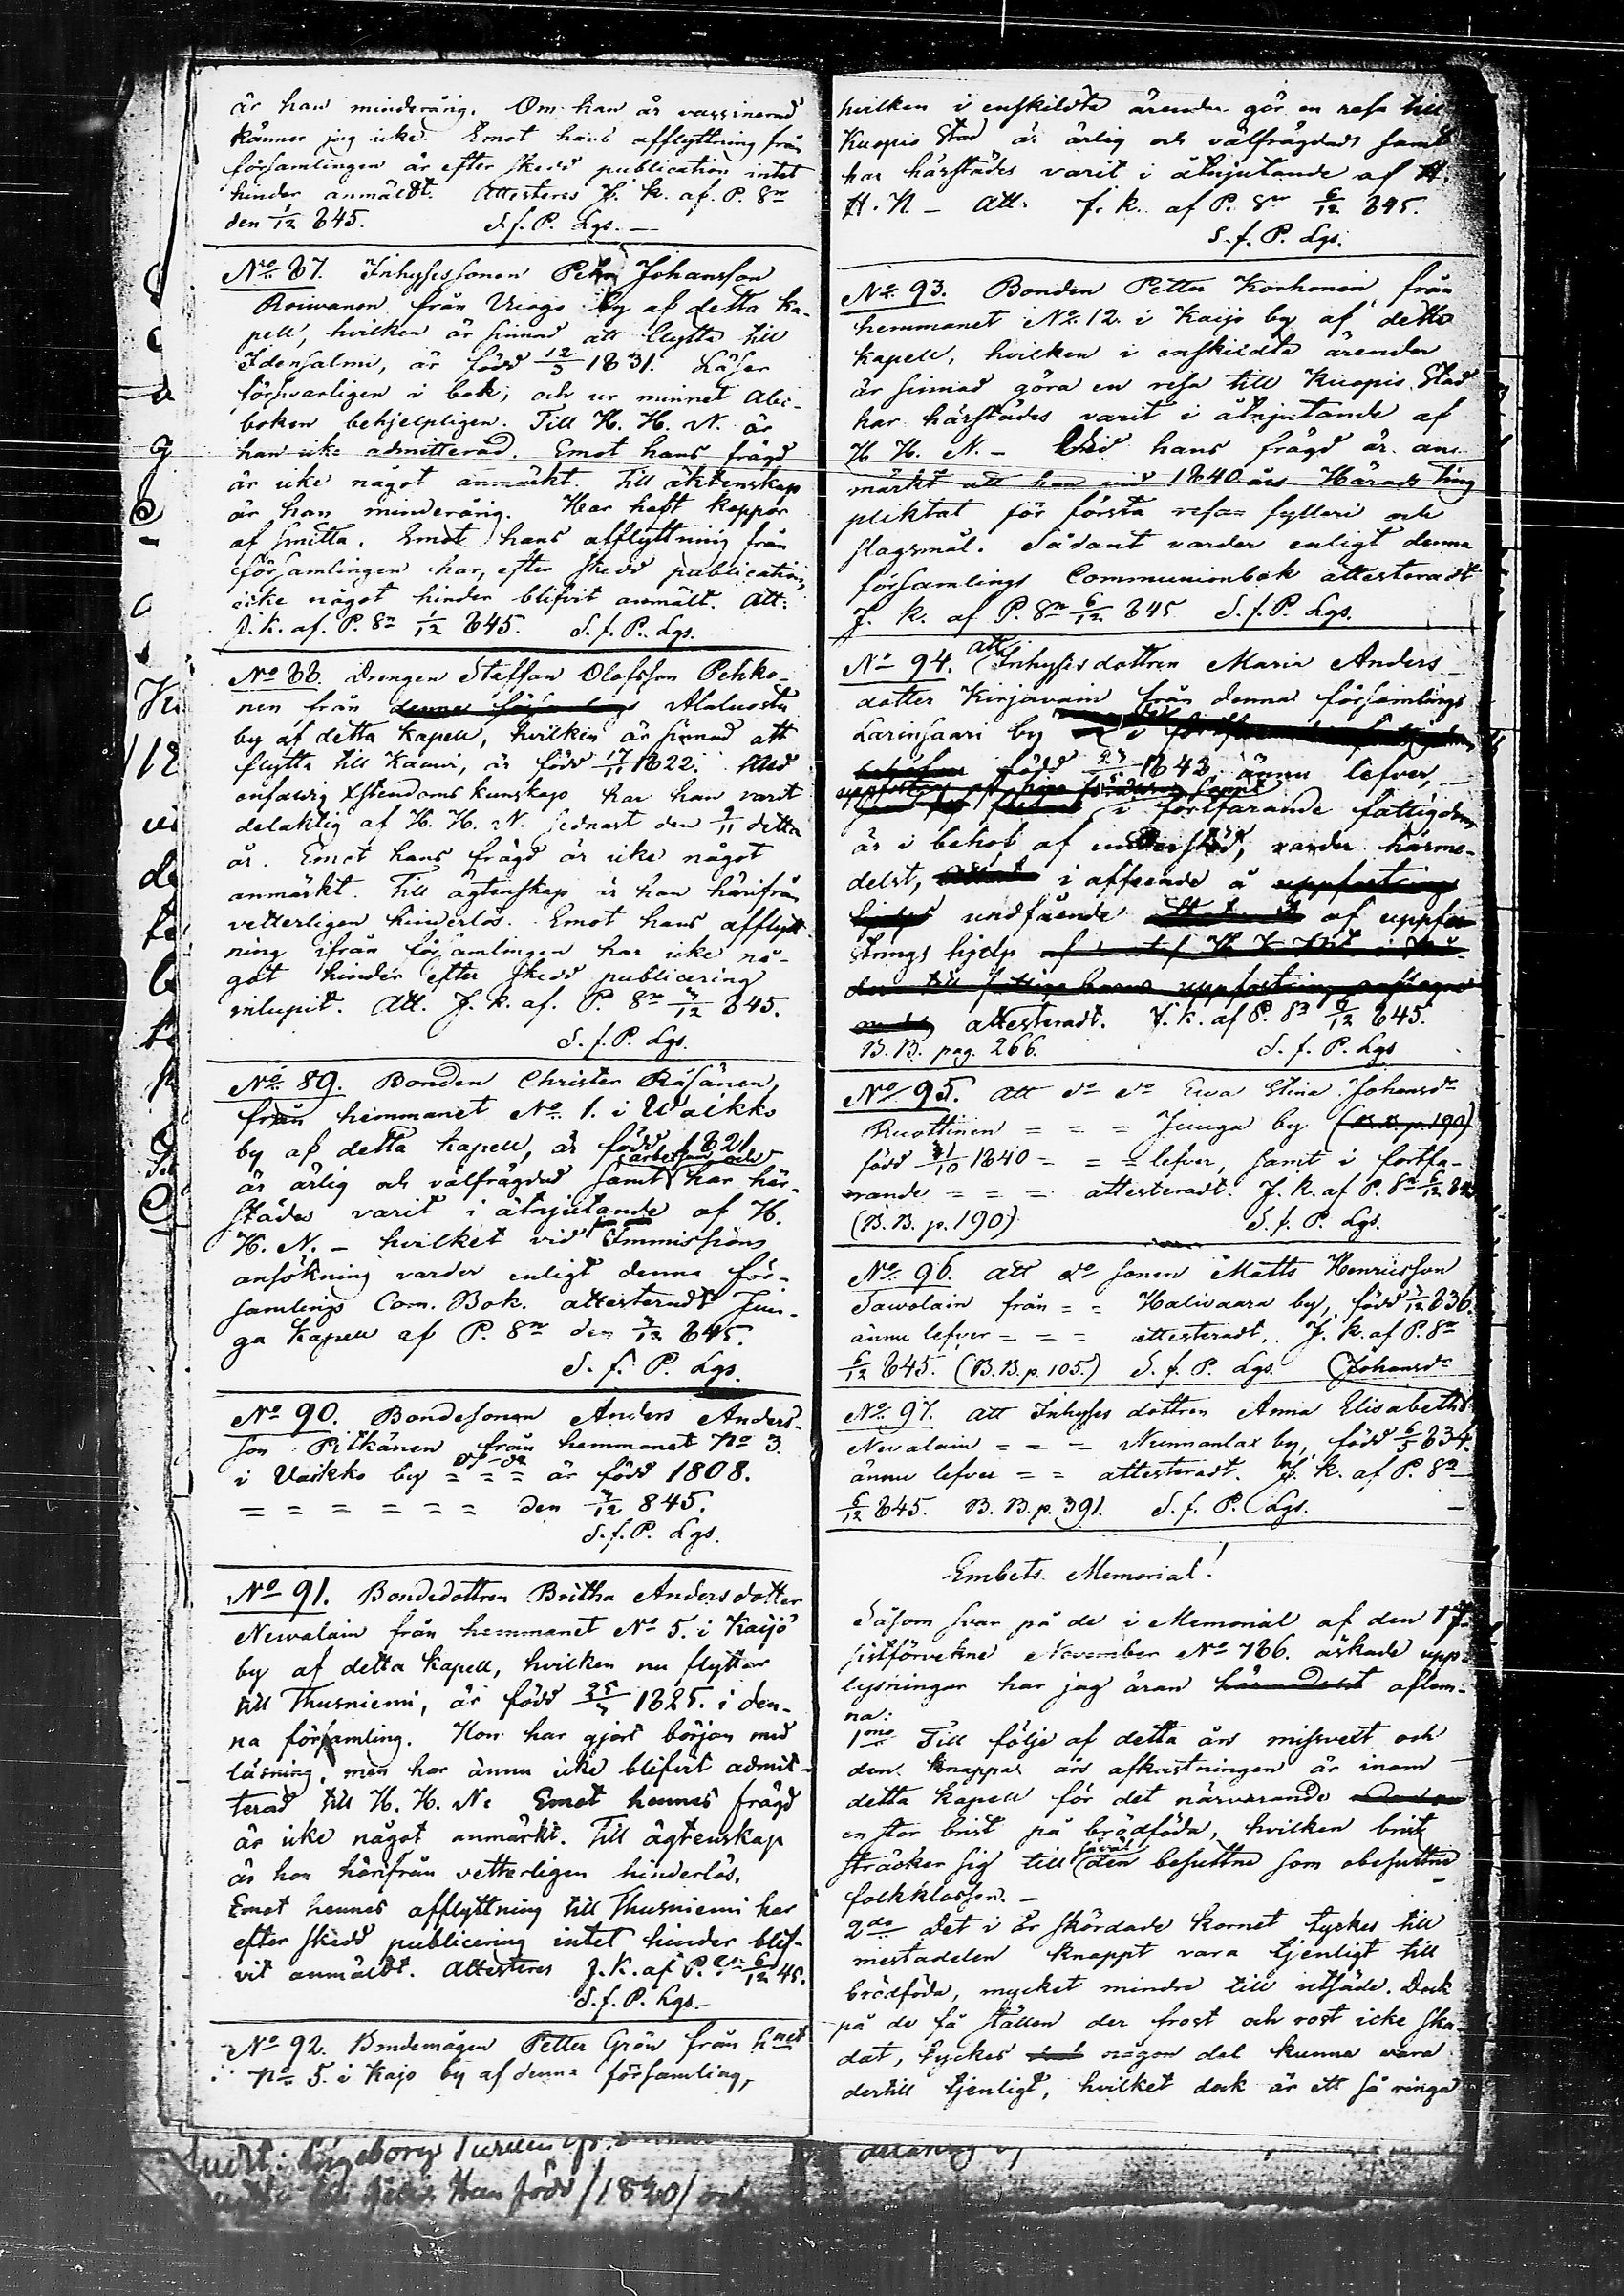 är han minderårig. Om han är vaxxinerad
känner jag icke. Emot hans afflyttning från
församlingen är efter skedd publication intet
hinder anmäldt. Attesteres J. k. af. P. 8n
den 1/12 845. S. f. P. Lgs. —
No 87. Inhysessonen Pehr Johansson
Roiwanen från Wiogs by af detta ka-
pell, hvilken är sinnad att flytta till
Idensalmi, är född 12/3 1831. Läser
försvarligen i bok, och ur minnet Abc-
boken behjelpligen. Till H. H. N. är
han icke admitterad. Emot hans frägd
är icke något anmärkt. Till äktenskap
är han minderårig. Har haft koppor
af smitta. Emot hans afflyttning från
församlingen har, efter skedd publication,
icke något hinder blifvit anmält. Att:
J. k. af. P. 8n 1/12 845. S. f. P. Lgs.
No 88. Drengen Staffan Olofsson Pehko-
nen från denna församlings Alaluosta
by af detta Kapell, hvilken är sinnad att
flytta till Kaawi, är född 17/11 1822. Med
enfaldig Xstendoms kunskap har han varit
delaktig af H. H. N. sednast den 9/11 detta
år. Emot hans frägd är icke något
anmärkt. Till ägtenskap är han härifrån
vetterligen hinderlös. Emot hans afflytt-
ning ifrån församlingen har icke nå-
got hinder efter skedd publicering
inlupit. Att. J. k. af. P. 8n 3/12 845.
S. f. P. Lgs.
No 89. Bonden Christer Räsänen,
från hemmanet No 1. i Waikko
by af detta Kapell, är född 1821
arbetsam och
är ärlig och välfrägdad samt har här-
städes varit i åtnjutande af H.
H. N. — hvilket vid Immissions
ansökning varder enligt denna för-
samlings Com. Bok. attesteradt Juu-
ga Kapell af P. 8n den 3/12 845.
S. f. P. Lgs.
No 90. Bondesonen Anders Anders-
son Pitkänen från hemmanet No 3.
i Vaikko by = = = är född 1808.
= = = = = = den 3/12 845.
S. f. P. Lgs.
No 91. Bondedottren Britha Andersdotter
Newalain från hemmanet No 5. i Kaijo
by af detta Kapell, hvilken nu flyttar
till Thusniemi, är född 25/5 1825. i den-
na församling. Hon har gjort början med
läsning, men har ännu icke blifvit admit-
terad till H. H. N. Emot hennes frägd
är icke något anmärkt. Till ägtenskap
är hon härifrån vetterligen hinderlös.
Emot hennes afflyttning till Thusniemi har
efter skedd publicering intet hinder blif-
vit anmäldt. Attesteres J. k. af P. 8n 6/12 45.
S. f. P. Lgs. —
No 92. Bondemågen Petter Grön från hmet
No 5. i Kajo by af denna församling,
hvilken i enskildta ärender gör en resa till
Kuopio Stad är ärlig och välfrägdad samt
har härstädes varit i åtnjutande af H.
H. N — Att. J. k. af P. 8n 6/12 845.
S. f. P. Lgs.
No 93. Bonden Petter Korhonen från
hemmanet No 12. i Kaijo by af detta
Kapell, hvilken i enskildta ärender
är sinnad göra en resa till Kuopio Stad
har härstädes varit i åtnjutande af
H H. N. — Vid hans frägd är an-
märkt att han vid 1840 års Härads ting
pliktat för första resan fylleri och
slagsmål. Sådant varder enligt denna
församlings Communionbok attesteradt
J. k. af P. 8n 6/12 845 S. f. P. Lgs.
No 94. att Inhysesdottren Maria Anders-
dotter Kinjavain från denna församlings
Larinsaari by
född 1843 ännu lefver, —
i fortfarande fattigdom
är i behof af understöd, varder härme-
delst, i affseende å uppfostrings
hjelps undfående af uppfo-
strings hjelp
attesteradt. J. k. af P. 8n 6/12 845.
B. B. pag. 266. S. f. P. Lgs
No 95. att do do Ewa Stina Johansdr
Ruottinen = = = Juuga by (B. B. p. 190)
född 31/10 1840 = = = lefver, samt i fortfa-
rande = = = attesteradt. J. k. af P. 8n 6/12 845
(B. B. p. 190) S. f. P. Lgs.
No 96. att do sonen Matts Henricsson
Sawolain från = = Halivaara by, född 836.
ännu lefver = = = attesteradt. J. k. af P. 8n
6/12 845. (B. B. p. 105.) S. f. P. Lgs. (Johansdr
No 97. att Inhyses dottren Anna Elisabeth
Newalain = = = Nunnanlax by, född 6/5 834.
ännu lefver = = attesteradt. J. k. af P. 8n
6/12 845. B. B. p. 391. S. f. P. Lgs. —
Embets Memorial!
Såsom svar på de i Memorial af den 17
sistförvekne November No 786. äskade upp-
lysningar har jag äran härmedelst aflem-
na:
1mo Till följe af detta års missvext och
den knappa års afkastningen är inom
detta Kapell för det närvarande
en stor brist på brödföda, hvilken brist
såväl
sträcker sig till den besuttne som obesuttne
folkklassen. —
2do Det i år skördade kornet tyckes till
mestadelen knappt vara tjenligt till
brödföda, mycket mindre till utsäde. Dock
på de få ställen der frost och rost icke ska-
dat, tyckes någon del kunna vara
dertill tjenligt, hvilket dock är ett så ringa